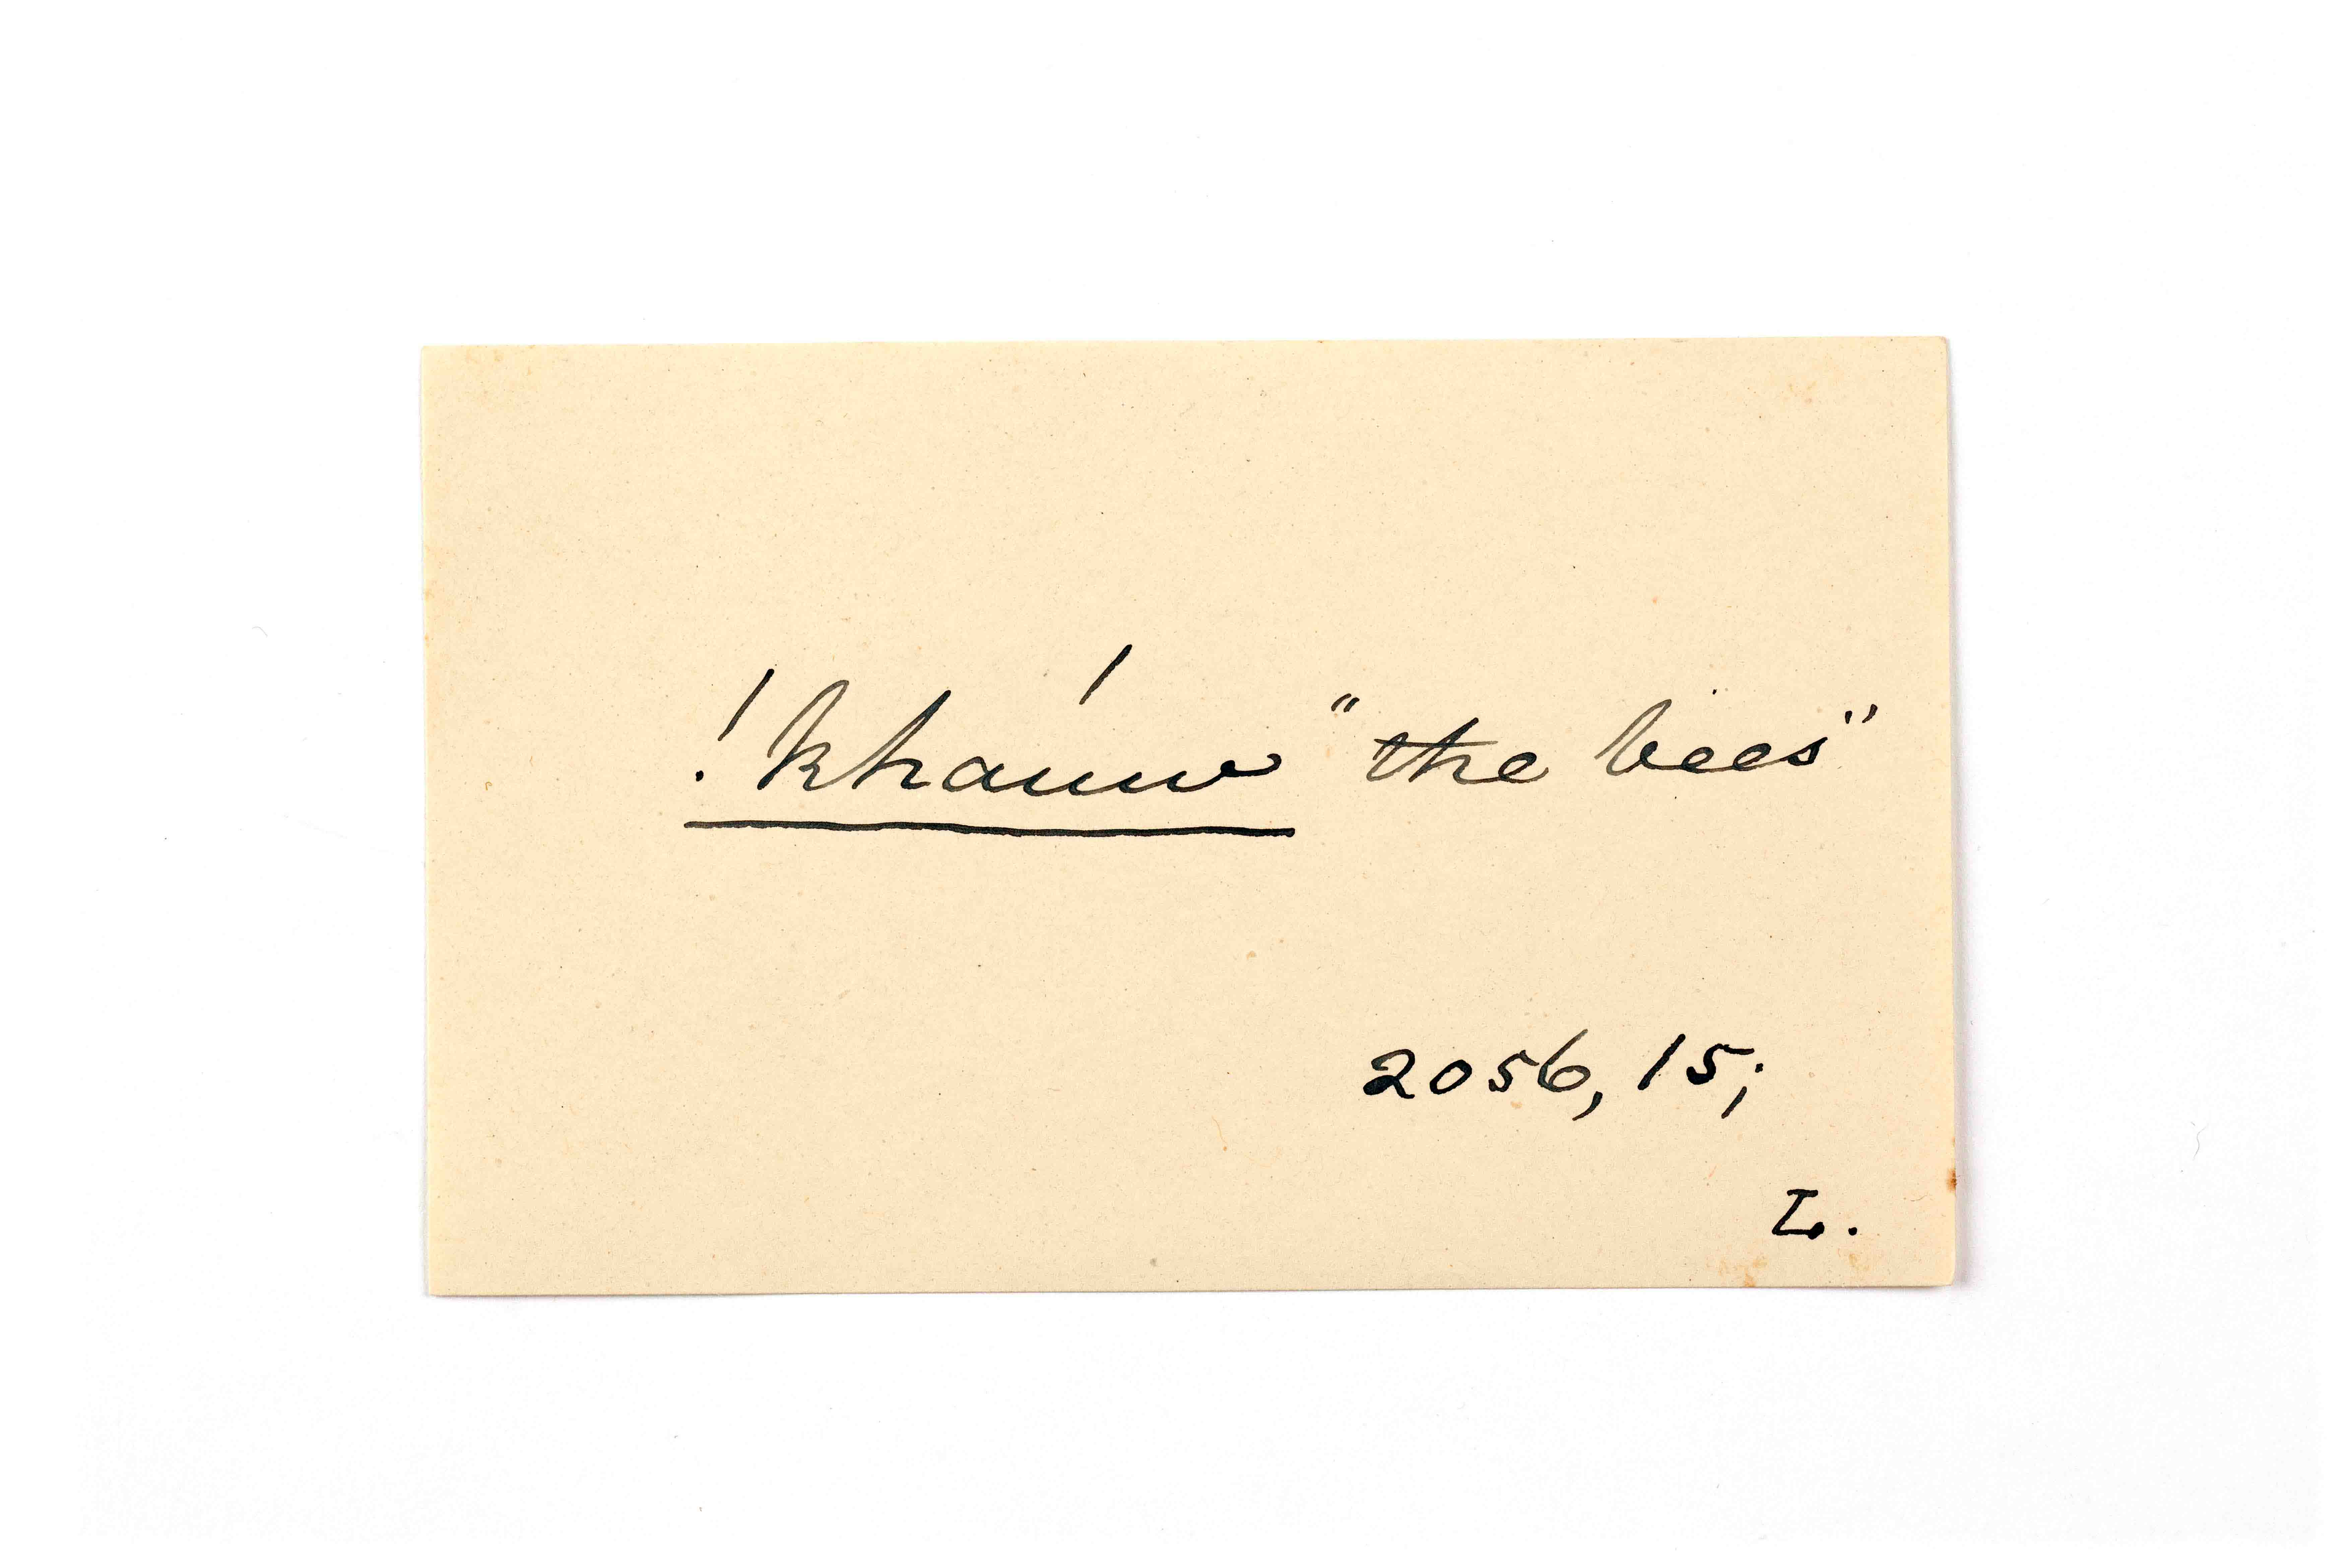 !khaúw "the bees"
2056, 15;
L.